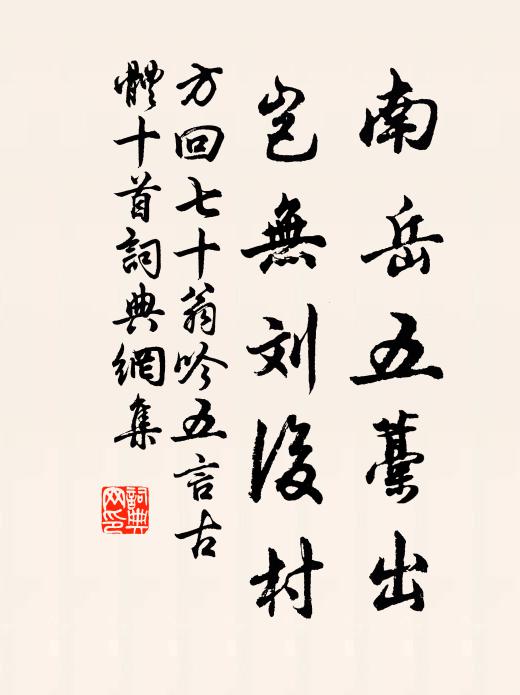 南岳五藁出
豈無刘後村
方回七十翁吟五言古
體十首詞典網集
詞典
网印